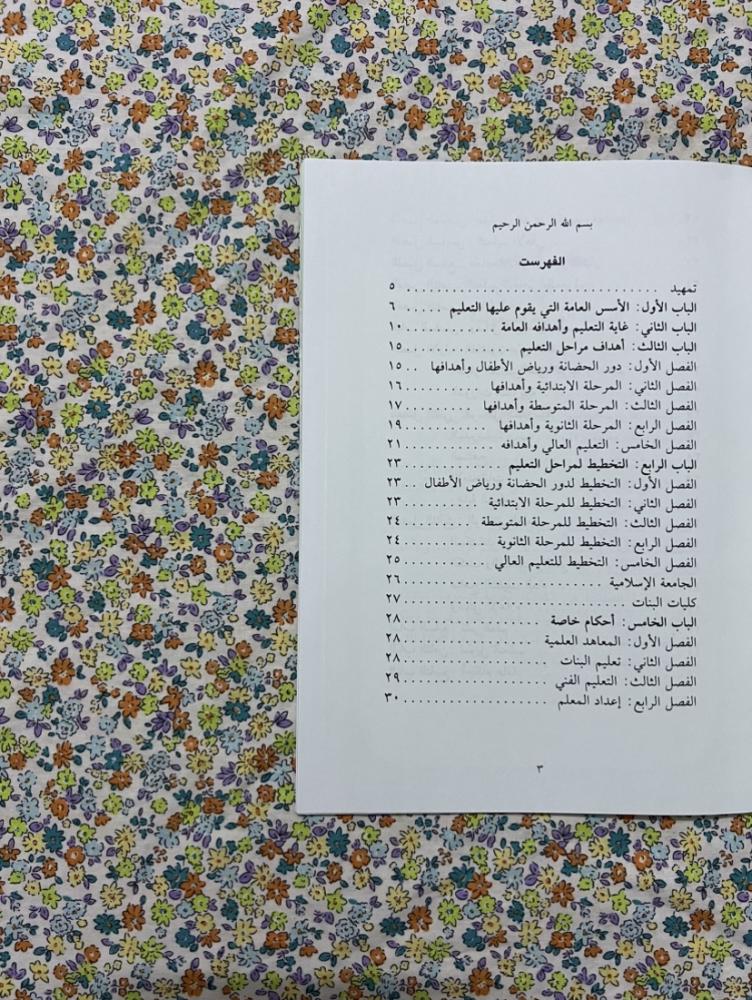 بسم الله الرحمن الرحيم
الفهرست
تمهيد ٥
الباب الأول: الأسس العامة التي يقوم عليها التعليم ٦
الباب الثاني: غاية التعليم وأهدافه العامة ١٠
الباب الثالث: أهداف مراحل التعليم ١٥
الفصل الأول: دور الحضانة ورياض الأطفال وأهدافها ١٥
الفصل الثاني: المرحلة الابتدائية وأهدافها ١٦
الفصل الثالث: المرحلة المتوسطة وأهدافها ١٧
الفصل الرابع: المرحلة الثانوية وأهدافها ١٩
الفصل الخامس: التعليم العالي وأهدافه ٢١
الباب الرابع: التخطيط لمراحل التعليم ٢٣
الفصل الأول: التخطيط لدور الحضانة ورياض الأطفال ٢٣
الفصل الثاني: التخطيط للمرحلة الابتدائية ٢٣
الفصل الثالث: التخطيط للمرحلة المتوسطة ٢٤
الفصل الرابع: التخطيط للمرحلة الثانوية ٢٤
الفصل الخامس: التخطيط للتعليم العالي ٢٥
الجامعة الإسلامية ٢٦
كليات البنات ٢٧
الباب الخامس: أحكام خاصة ٢٨
الفصل الأول: المعاهد العلمية ٢٨
الفصل الثاني: تعليم البنات ٢٨
الفصل الثالث: التعليم الفني ٢٩
الفصل الرابع: إعداد المعلم ٣٠
٣